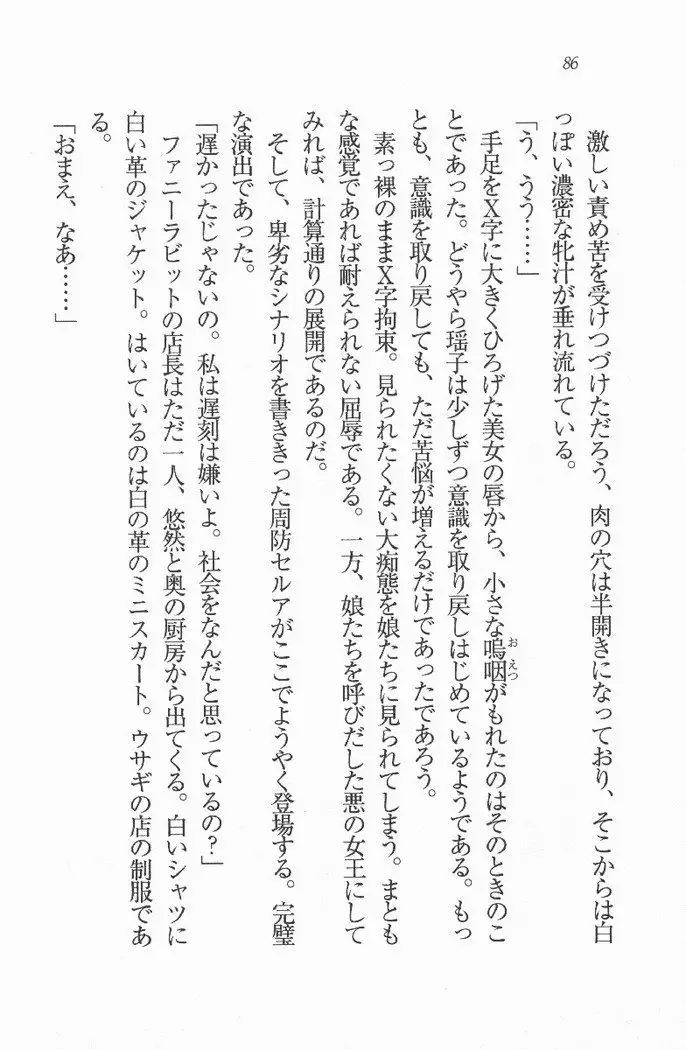 86
激しい責め苦を受けつづけただろう、肉の穴は半開きになっており、そこからは白
っぽい濃密な牝汁が垂れ流れている。
「う、うう……」
手足をX字に大きくひろげた美女の唇から、小さな嗚咽がもれたのはそのときのこ
おえつ
とであった。どうやら瑶子は少しずつ意識を取り戻しはじめているようである。もっ
とも、意識を取り戻しても、ただ苦悩が増えるだけであったであろう。
素っ裸のままX字拘束。見られたくない大痴態を娘たちに見られてしまう。まとも
な感覚であれば耐えられない屈辱である。一方、娘たちを呼びだした悪の女王にして
みれば、計算通りの展開であるのだ。
そして、卑劣なシナリオを書ききった周防セルアがここでようやく登場する。完璧
な演出であった。
「遅かったじゃないの。私は遅刻は嫌いよ。社会をなんだと思っているの？」
ファニーラビットの店長はただ一人、悠然と奥の厨房から出てくる。白いシャツに
白い革のジャケット。はいているのは白の革のミニスカート。ウサギの店の制服であ
る。
「おまえ、なあ……」